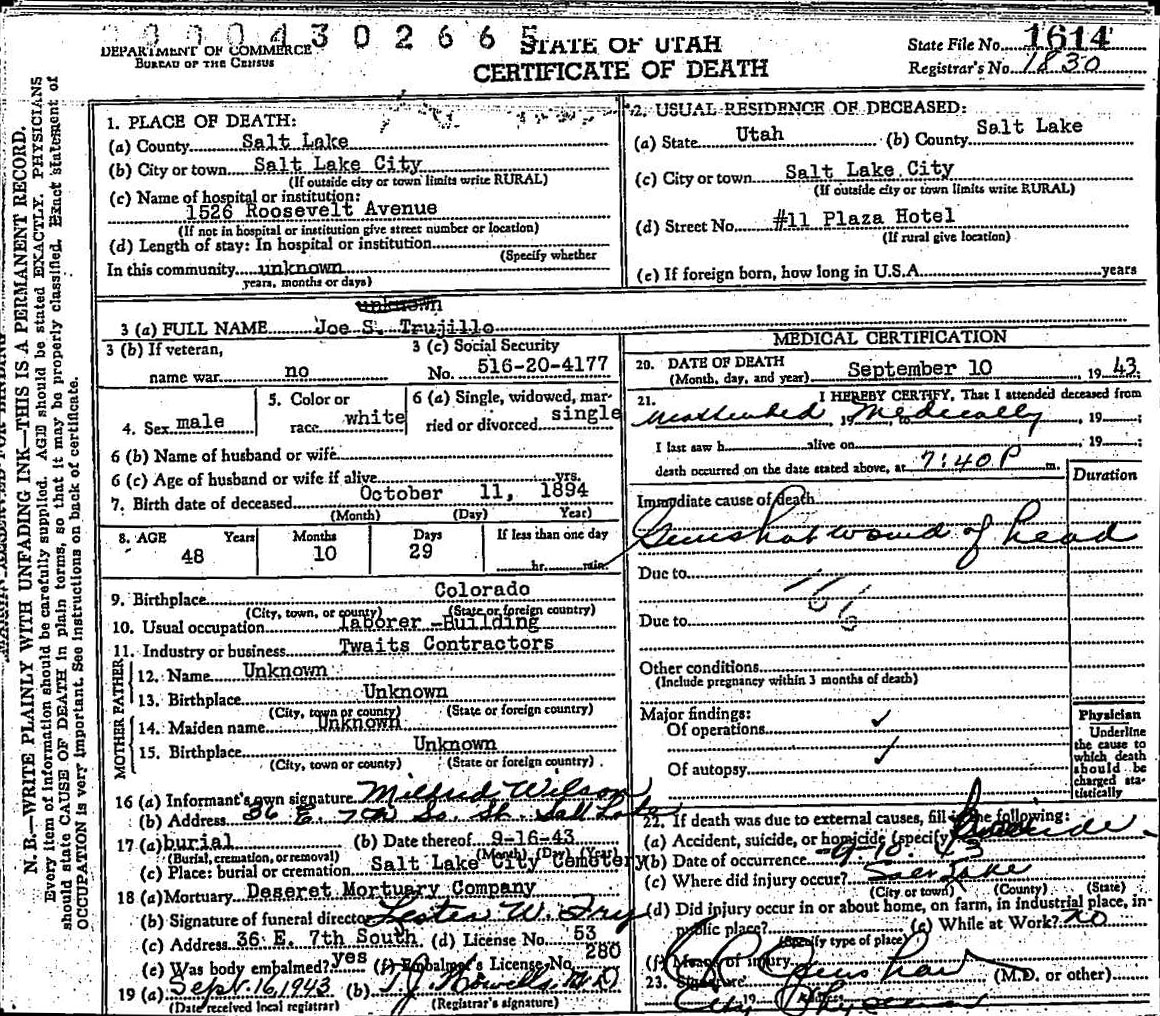 0 0 0 4 3 0 2 6 6 5
DEPARTMENT OF COMMERCE
BUREAU OF THE CENSUS
STATE OF UTAH
CERTIFICATE OF DEATH
State File No. 1614
Registrar's No. 1830
N. B.—WRITE PLAINLY WITH UNFADING INK—THIS IS A PERMANENT RECORD.
Every item of information should be carefully supplied. AGE should be stated EXACTLY. PHYSICIANS
should state CAUSE OF DEATH in plain terms, so that it may be properly classified. Exact statement of
OCCUPATION is very important. See instructions on back of certificate.
1. PLACE OF DEATH:
(a) County Salt Lake
(b) City or town Salt Lake City
(If outside city or town limits write RURAL)
(c) Name of hospital or institution:
1526 Roosevelt Avenue
(If not in hospital or institution give street number or location)
(d) Length of stay: In hospital or institution
(Specify whether
In this community unknown
years, months or days)
2. USUAL RESIDENCE OF DECEASED:
(a) State Utah (b) County Salt Lake
(c) City or town Salt Lake City
(If outside city or town limits write RURAL)
(d) Street No. #11 Plaza Hotel
(If rural give location)
(e) If foreign born, how long in U.S.A. years
unknown
3 (a) FULL NAME Joe S. Trujillo
3 (b) If veteran,
name war no
3 (c) Social Security
No. 516-20-4177
4. Sex male
5. Color or
race white
6 (a) Single, widowed, mar-
ried or divorced single
6 (b) Name of husband or wife
6 (c) Age of husband or wife if alive yrs.
7. Birth date of deceased October 11, 1894
(Month) (Day) Year)
8. AGE Years Months Days If less than one day
48 10 29 hr. min.
9. Birthplace Colorado
(City, town, or county) (State or foreign country)
10. Usual occupation laborer -Building
11. Industry or business Twaits Contractors
FATHER
12. Name Unknown
13. Birthplace Unknown
(City, town or county) (State or foreign country)
MOTHER
14. Maiden name Unknown
15. Birthplace Unknown
(City, town or county) (State or foreign country)
16 (a) Informant's own signature Milfred Wilson
(b) Address 36 E. 7th So. St. Salt Lake
17 (a) burial (b) Date thereof 9-16-43
(Burial, cremation, or removal) (Month) (Day) (Year)
(c) Place: burial or cremation Salt Lake City Cemetery
18 (a) Mortuary Deseret Mortuary Company
(b) Signature of funeral director Lester W. Fry
(c) Address 36 E. 7th South (d) License No. 53
(e) Was body embalmed? yes (f) Embalmer's License No. 280
19 (a) Sept. 16, 1943 (b) T. J. Howells, M D
(Date received local registrar) (Registrar's signature)
MEDICAL CERTIFICATION
20. DATE OF DEATH
(Month, day, and year) September 10 1943
21. I HEREBY CERTIFY, That I attended deceased from
Medically 19
I last saw h alive on 19
death occurred on the date stated above, at 7:40 P m.
Duration
Immediate cause of death
Gunshot wound of head
Due to
Due to
Other conditions
(Include pregnancy within 3 months of death)
Major findings:
Of operations ✓
Of autopsy ✓
Physician
Underline
the cause to
which death
should be
charged sta-
tistically
22. If death was due to external causes, fill in the following:
(a) Accident, suicide, or homicide (specify)
(b) Date of occurrence 9-10-43
(c) Where did injury occur? Salt Lake
(City or town) (County) (State)
(d) Did injury occur in or about home, on farm, in industrial place, in-
public place? (e) While at Work? no
(Specify type of place)
(f) Means of injury Gunshot
23. Signature (M.D. or other)
19 Address City Physician